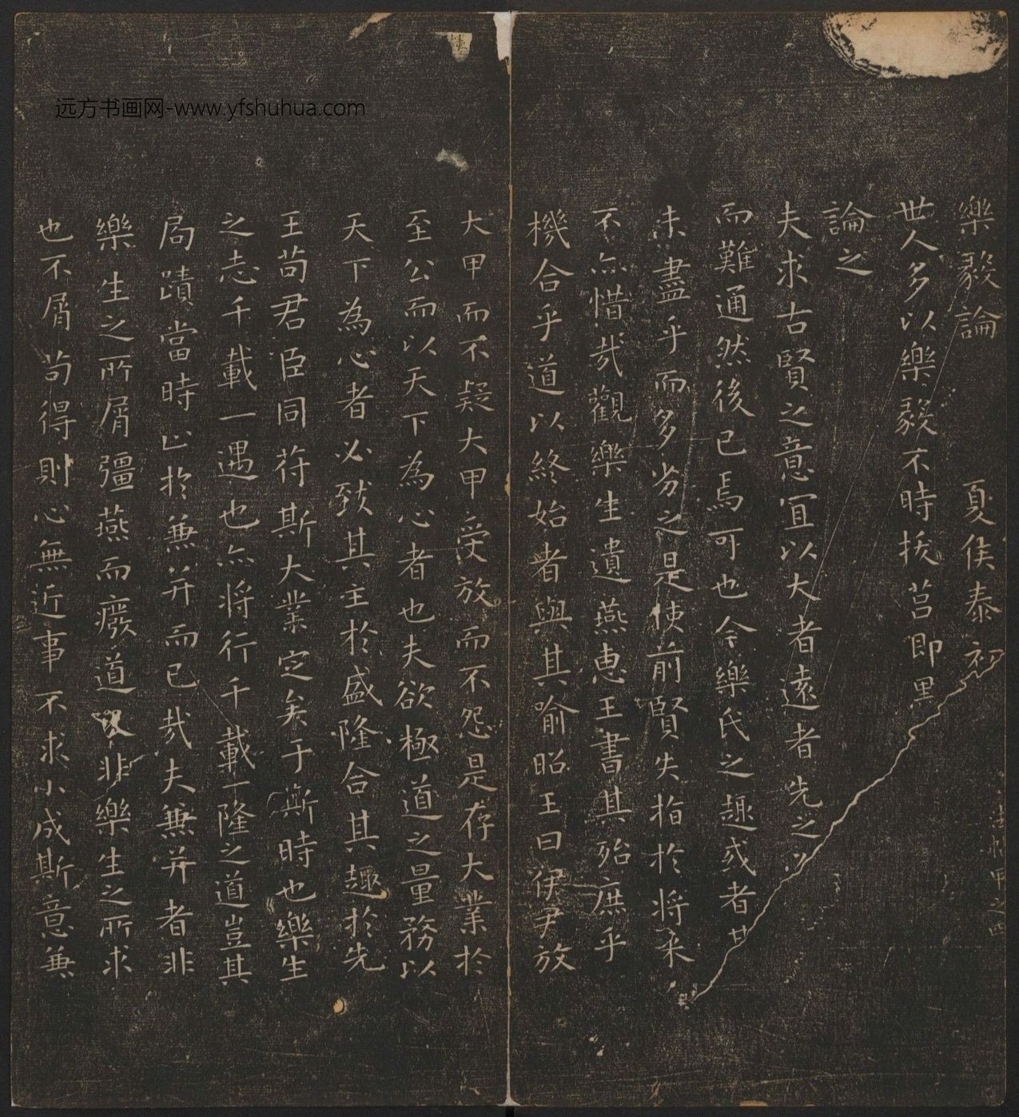 樂毅論 夏侯泰初
世人多以樂毅不時拔莒即墨
論之
夫求古賢之意宜以大者遠者先之必
而難通然後已焉可也今樂氏之趣或者其
未盡乎而多劣之是使前賢失指於將来
不亦惜哉觀樂生遺燕惠王書其殆庶乎
機合乎道以終始者與其喻昭王曰伊尹放
大甲而不疑大甲受放而不怨是存大業於
至公而以天下為心者也夫欲極道之量務以
天下為心者必致其主於盛隆合其趣於先
王苟君臣同符斯大業定矣于斯時也樂生
之志千載一遇也亦将行千載一隆之道豈其
局蹟當時止於兼并而已哉夫兼并者非
樂生之所屑彊燕而癈道又非樂生之所求
也不屑苟得則心無近事不求小成斯意兼
远方书画网-www.yfshuhua.com